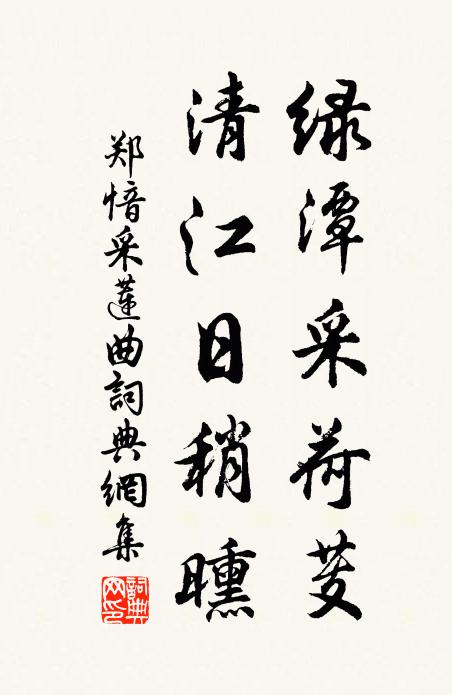 绿潭采荷芰
清江日稍曛
郑愔采蓮曲詞典網集
詞典网印